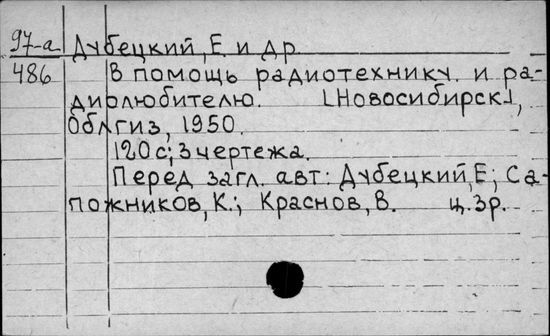 97-а Дубецкий, Е. и др.
486 В помощь радиотехнику и ра-
диолюбителю. [Новосибирск],
Облгиз, 1950.
120 с; 3 чертежа.
Перед загл. авт: Дубецкий, Е; Са-
пожников, К.; Краснов, В. ц. 3р.